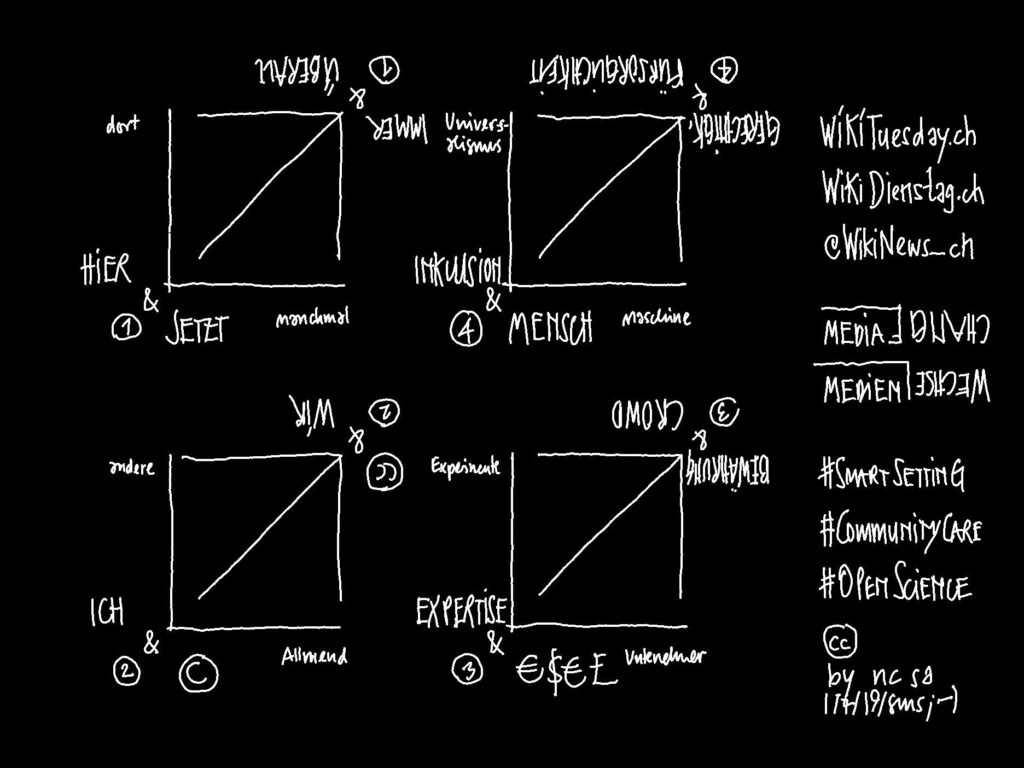 ÜBERALL 1
&
IMMER
dort
HiER
&
1 JETZT manchmal
FÜRSORGLICHKEIT 4
&
GERECHTIGK.
Univers-
alismus
INKLUSION
&
4 MENSCH maschine
WiR 2
&
CC
andere
ICH
&
2 © Allmend
CROWD 3
&
BEWÄHRUNG
Experimente
EXPERTISE
&
3 €$€£ Unternehmer
WiKiTuesday.ch
WiKiDienstag.ch
@WikiNews_ch
MEDiA CHANGE
MEDiEN WECHSEL
#SMARTSETTiNG
#COMMUNiTYCARE
#OPENSCiENCE
cc
by nc sa